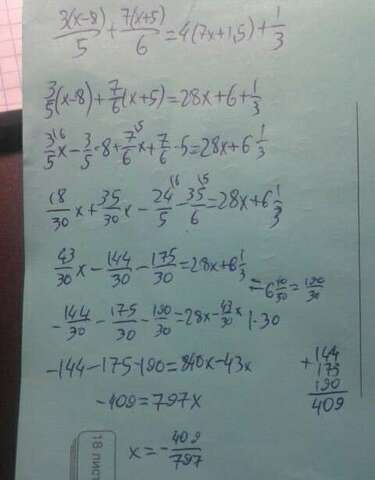 3(x-8)/5 + 7(x+5)/6 = 4(7x+1,5) + 1/3
3/5(x-8) + 7/6(x+5) = 28x + 6 + 1/3
3/5^6 x - 3/5 · 8 + 7/6^5 x + 7/6 · 5 = 28x + 6 1/3
18/30 x + 35/30 x - 24/5^6 - 35/6^5 = 28x + 6 1/3
43/30 x - 144/30 - 175/30 = 28x + 6 1/3
= 6 10/30 = 190/30
- 144/30 - 175/30 - 190/30 = 28x - 43/30 x | · 30
-144 - 175 - 190 = 840x - 43x
-409 = 797x
x = - 409/797
+ 144
175
190
409
18 лист